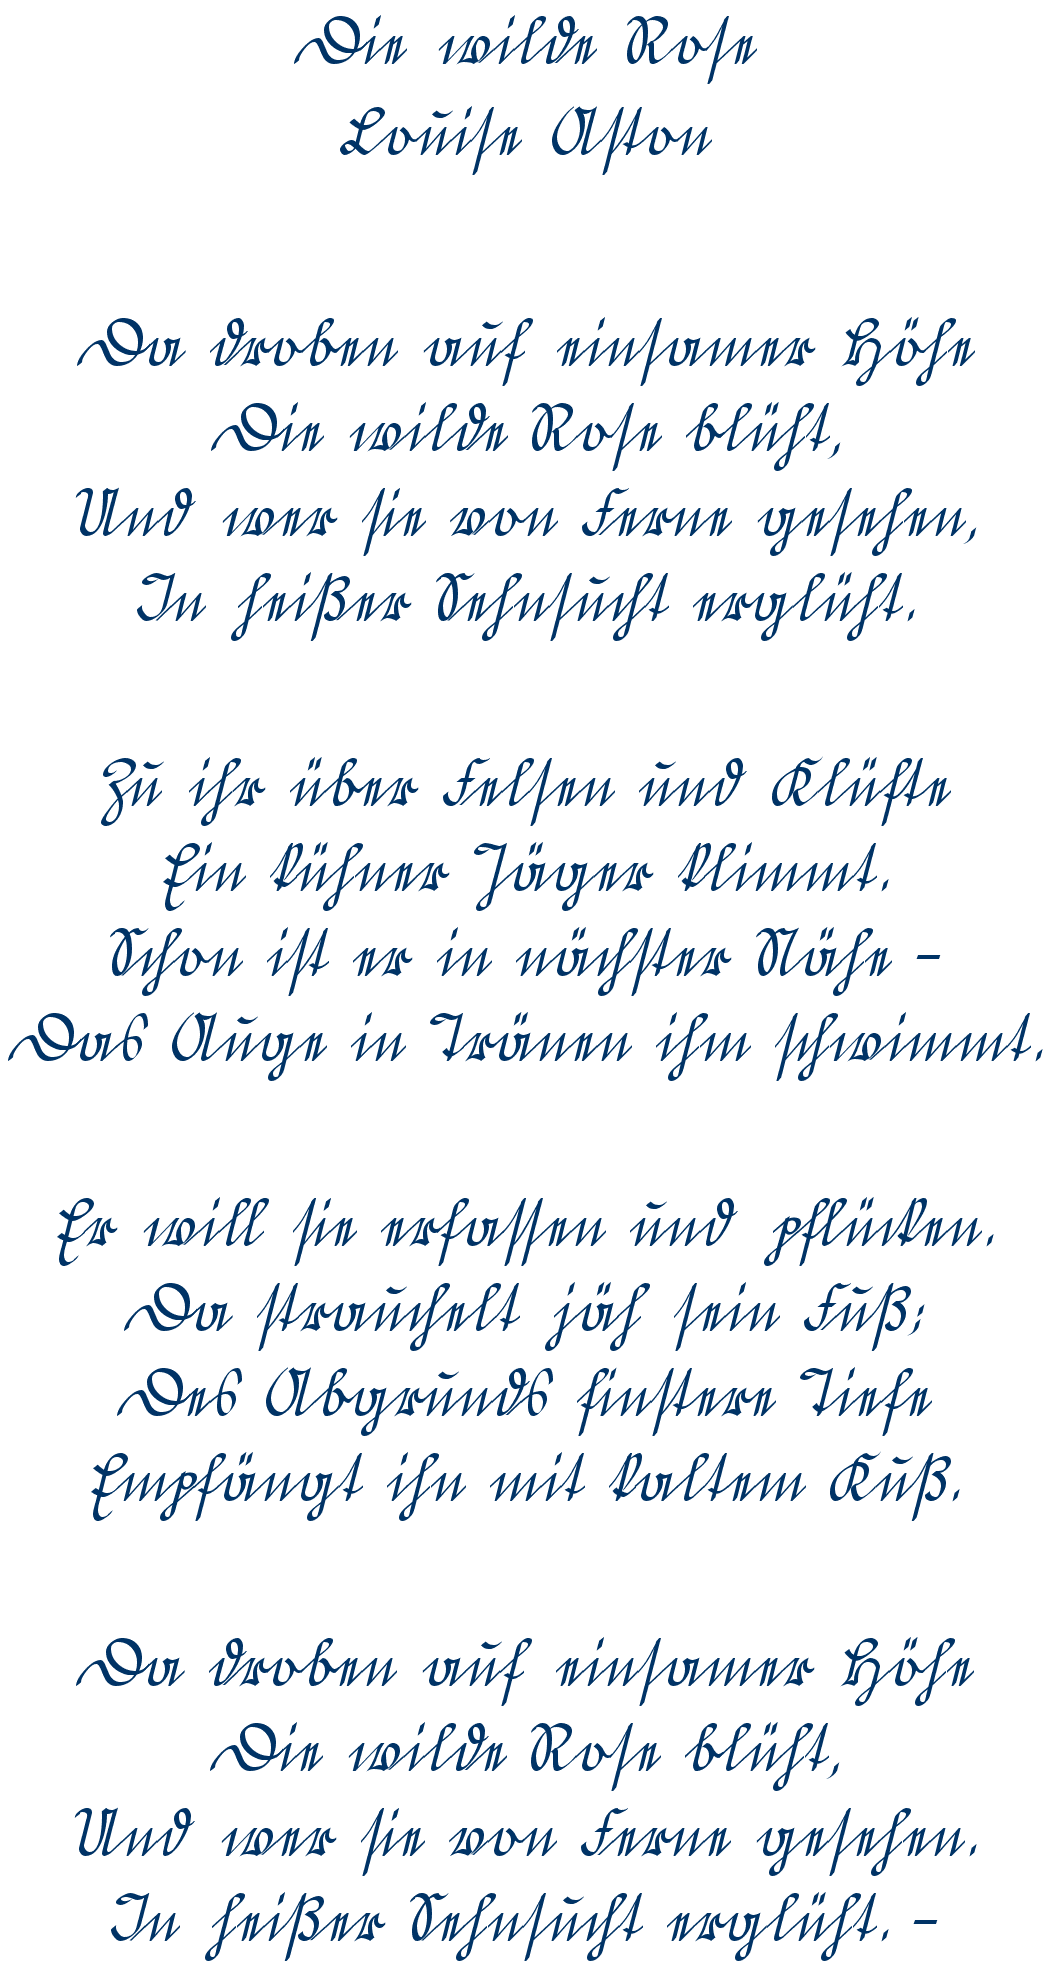 Die wilde Rose
Louise Aston
Da droben auf einsamer Höhe
Die wilde Rose blüht,
Und wer sie von Ferne gesehen,
In heißer Sehnsucht erglüht.
Zu ihr über Felsen und Klüfte
Ein kühner Jäger klimmt.
Schon ist er in nächster Nähe –
Das Auge in Tränen ihm schwimmt.
Er will sie erfassen und pflücken.
Da strauchelt jäh sein Fuß;
Des Abgrunds finstere Tiefe
Empfängt ihn mit kaltem Kuß.
Da droben auf einsamer Höhe
Die wilde Rose blüht,
Und wer sie von Ferne gesehen.
In heißer Sehnsucht erglüht. –